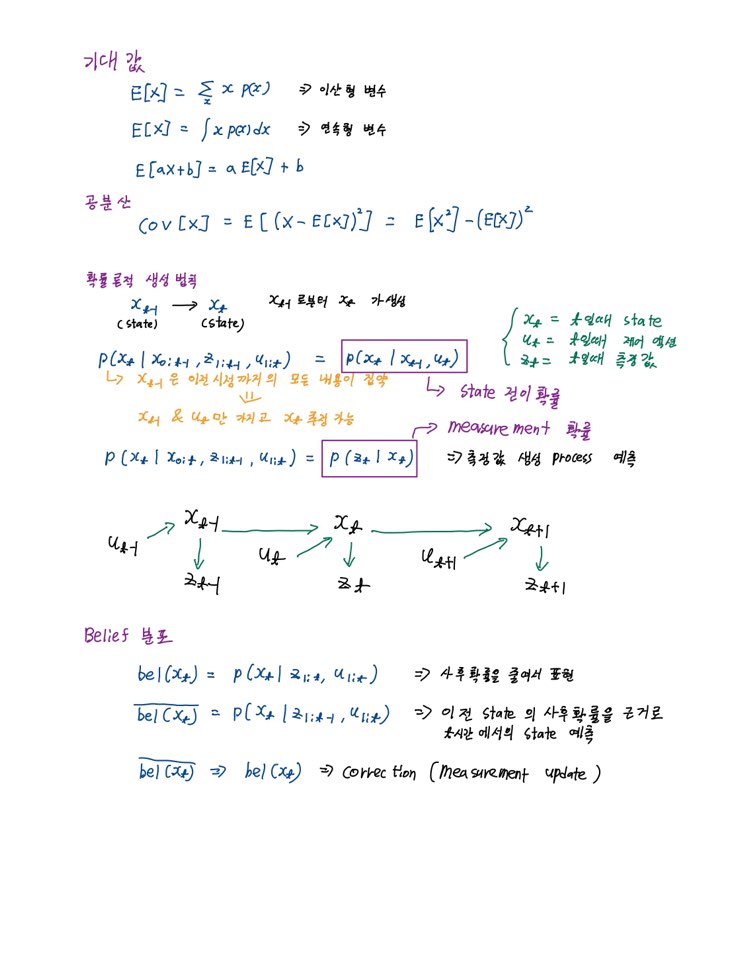 기대값
E[X] = Σₓ x p(x) ⇒ 이산형 변수
E[X] = ∫ x p(x) dx ⇒ 연속형 변수
E[aX+b] = a E[X] + b
공분산
Cov[X] = E[(X-E[X])²] = E[X²]-(E[X])²
확률론적 생성 법칙
xₜ₋₁ → xₜ xₜ₋₁로부터 xₜ가 생성
(state) (state)
xₜ = t일때 state
uₜ = t일때 제어 액션
zₜ = t일때 측정값
p(xₜ | x₀:ₜ₋₁, z₁:ₜ₋₁, u₁:ₜ) = p(xₜ | xₜ₋₁, uₜ)
↳ xₜ₋₁은 이전시점까지의 모든 내용이 집약
↳ state 전이 확률
⇓
xₜ₋₁ & uₜ만 가지고 xₜ 추정 가능
→ measurement 확률
p(xₜ | x₀:ₜ, z₁:ₜ₋₁, u₁:ₜ) = p(zₜ | xₜ) ⇒ 측정값 생성 process 예측
xₜ₋₁ xₜ xₜ₊₁
uₜ₋₁ uₜ uₜ₊₁
zₜ₋₁ zₜ zₜ₊₁
Belief 분포
bel(xₜ) = p(xₜ | z₁:ₜ, u₁:ₜ) ⇒ 사후확률을 줄여서 표현
b̅e̅l̅(̅x̅ₜ)̅ = p(xₜ | z₁:ₜ₋₁, u₁:ₜ) ⇒ 이전 state의 사후확률을 근거로
t시간에서의 state 예측
b̅e̅l̅(̅x̅ₜ)̅ ⇒ bel(xₜ) ⇒ correction (measurement update)